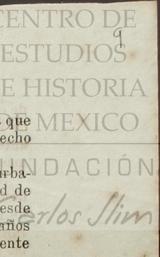 CENTRO DE
9
ESTUDIOS
DE HISTORIA
que
DE MEXICO
echo
FUNDACIÓN
urba-
d de
Carlos Slim
esde
años
ente